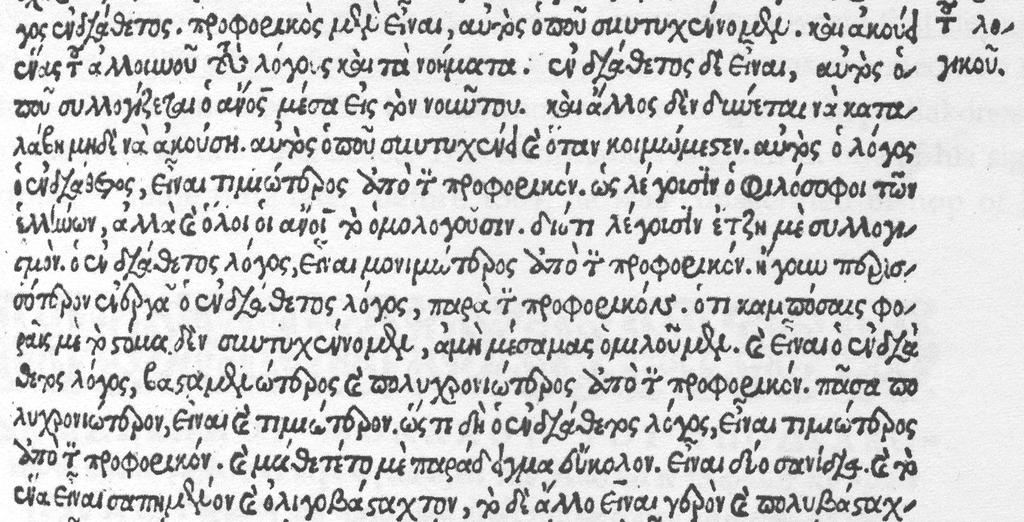 γος ἐνδιάθετος. προφορικὸς μὲν εἶναι, αὐτὸς ὁποῦ συντυχένομεν. καὶ ἀκούει
ἕνας τοῦ ἀλλουνοῦ τοὺς λόγους καὶ τὰ νοήματα. ἐνδιάθετος δὲ εἶναι, αὐτὸς ὁ-
ποῦ συλλογίζεται ὁ ἄνος μέσα εἰς τὸν νουντου. καὶ ἄλλος δὲν δύνεται νὰ κατα-
λάβη μηδὲ νὰ ἀκούση. αὐτὸς ὁποῦ συντυχένει καὶ ὅταν κοιμώμεστεν. αὐτὸς ὁ λόγος
ὁ ἐνδιάθετος, εἶναι τιμιώτερος ἀπὸ τὸν προφορικόν. ὡς λέγουσιν ὁ φιλόσοφοι τῶν
ἑλλήνων, ἀλλὰ καὶ ὅλοι οἱ ἄνοι τὸ ὁμολογοῦσιν. διότι λέγουσιν ἔτζη μὲ συλλογι-
σμόν. ὁ ἐνδιάθετος λόγος, εἶναι μονιμώτερος ἀπὸ τὸν προφορικόν. ἤγουν περισ-
σότερον ἐνεργεῖ ὁ ἐνδιάθετος λόγος, παρὰ τοῦ προφορικοῦ. ὅτι καμπόσαις φο-
ραῖς μὲ τὸ στόμα δὲν συντυχένομεν, ἀμὴ μέσαμας ὁμιλοῦμεν. καὶ εἶναι ὁ ἐνδιά-
θετος λόγος, βασταμενώτερος καὶ πολυχρονιώτερος ἀπὸ τὸν προφορικόν. πᾶσα πο-
λυχρονιώτερον, εἶναι καὶ τιμιώτερον. ὥστι δὴ ὁ ἐνδιάθετος λόγος, εἶναι τιμιώτερος
ἀπὸ τὸν προφορικόν. καὶ μάθετέτο μὲ παράδειγμα εὔκολον. εἶναι δύο σανίδια. καὶ τὸ
ἕνα εἶναι σαπημένον καὶ ὀλιγοβάσταχτον, τὸ δὲ ἄλλο εἶναι γερὸν καὶ πολυβάσταχ-
τοῦ λο-
γικοῦ.